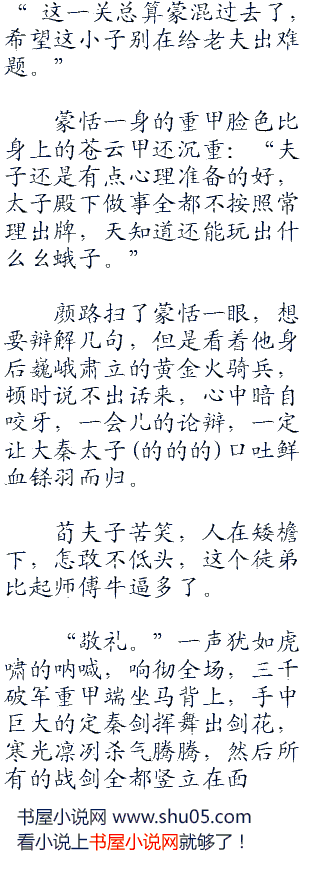 “ 这一关总算蒙混过去了，
希望这小子别在给老夫出难
题。”
蒙恬一身的重甲脸色比
身上的苍云甲还沉重：“夫
子还是有点心理准备的好，
太子殿下做事全都不按照常
理出牌，天知道还能玩出什
么幺蛾子。”
颜路扫了蒙恬一眼，想
要辩解几句，但是看着他身
后巍峨肃立的黄金火骑兵，
顿时说不出话来，心中暗自
咬牙，一会儿的论辩，一定
让大秦太子(的的的)口吐鲜
血铩羽而归。
荀夫子苦笑，人在矮檐
下，怎敢不低头，这个徒弟
比起师傅牛逼多了。
“敬礼。”一声犹如虎
啸的呐喊，响彻全场，三千
破军重甲端坐马背上，手中
巨大的定秦剑挥舞出剑花，
寒光凛冽杀气腾腾，然后所
有的战剑全都竖立在面
书屋小说网 www.shu05.com
看小说上书屋小说网就够了！